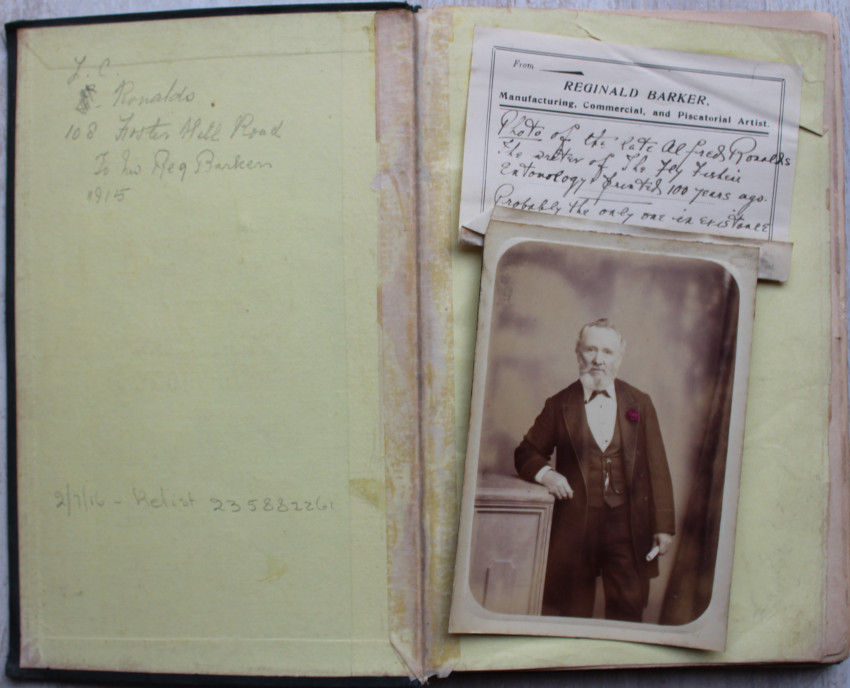 J. C.
Ronalds.
108 Foster Hill Road
To Reg Barker
1915
2/7/16 - Relist 235882261
From
REGINALD BARKER,
Manufacturing, Commercial, and Piscatorial Artist.
Photo of the late Alfred Ronalds
The writer of The Fly Fishers
Entomology printed 100 years ago.
Probably the only one in existance